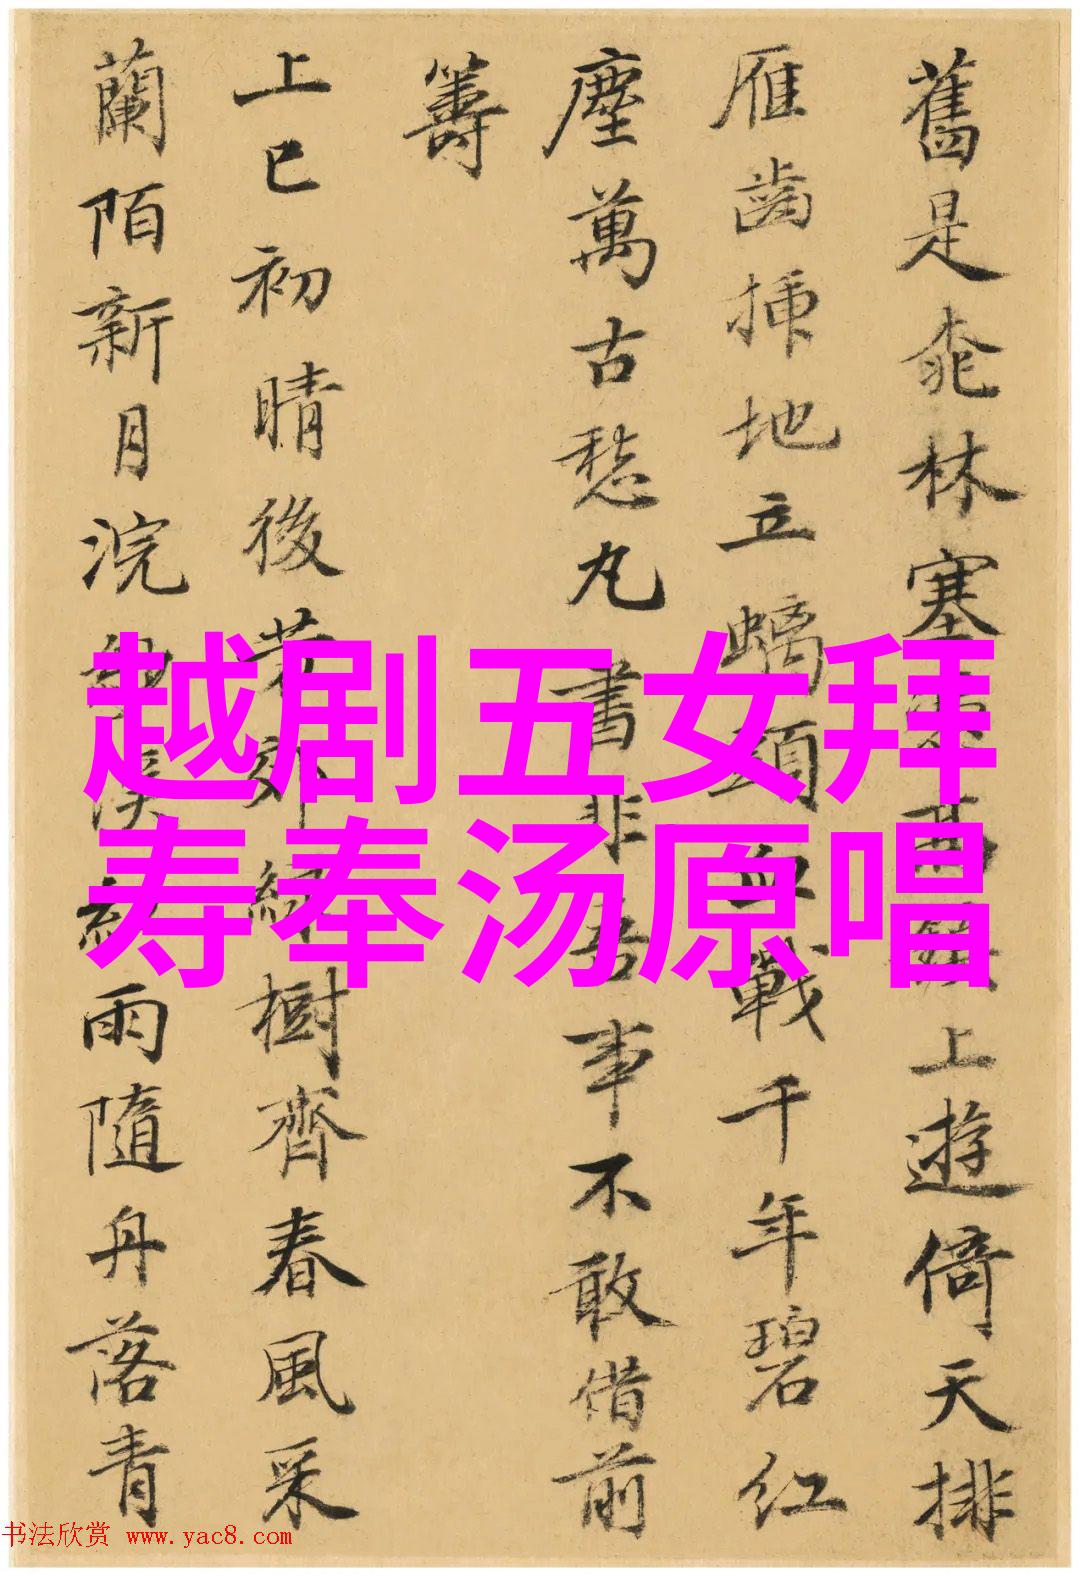 舊是桃林塞上遊倚天排
雁齒插地立螭頭血戰千年碧紅
塵萬古愁丸書非吾事不敢借前
籌
上巳初晴後芳郊樹齊春風采
蘭陌新月浣紗溪雨隨舟落青
越剧五女拜
寿奉汤原唱
书法欣赏 www.yac8.com